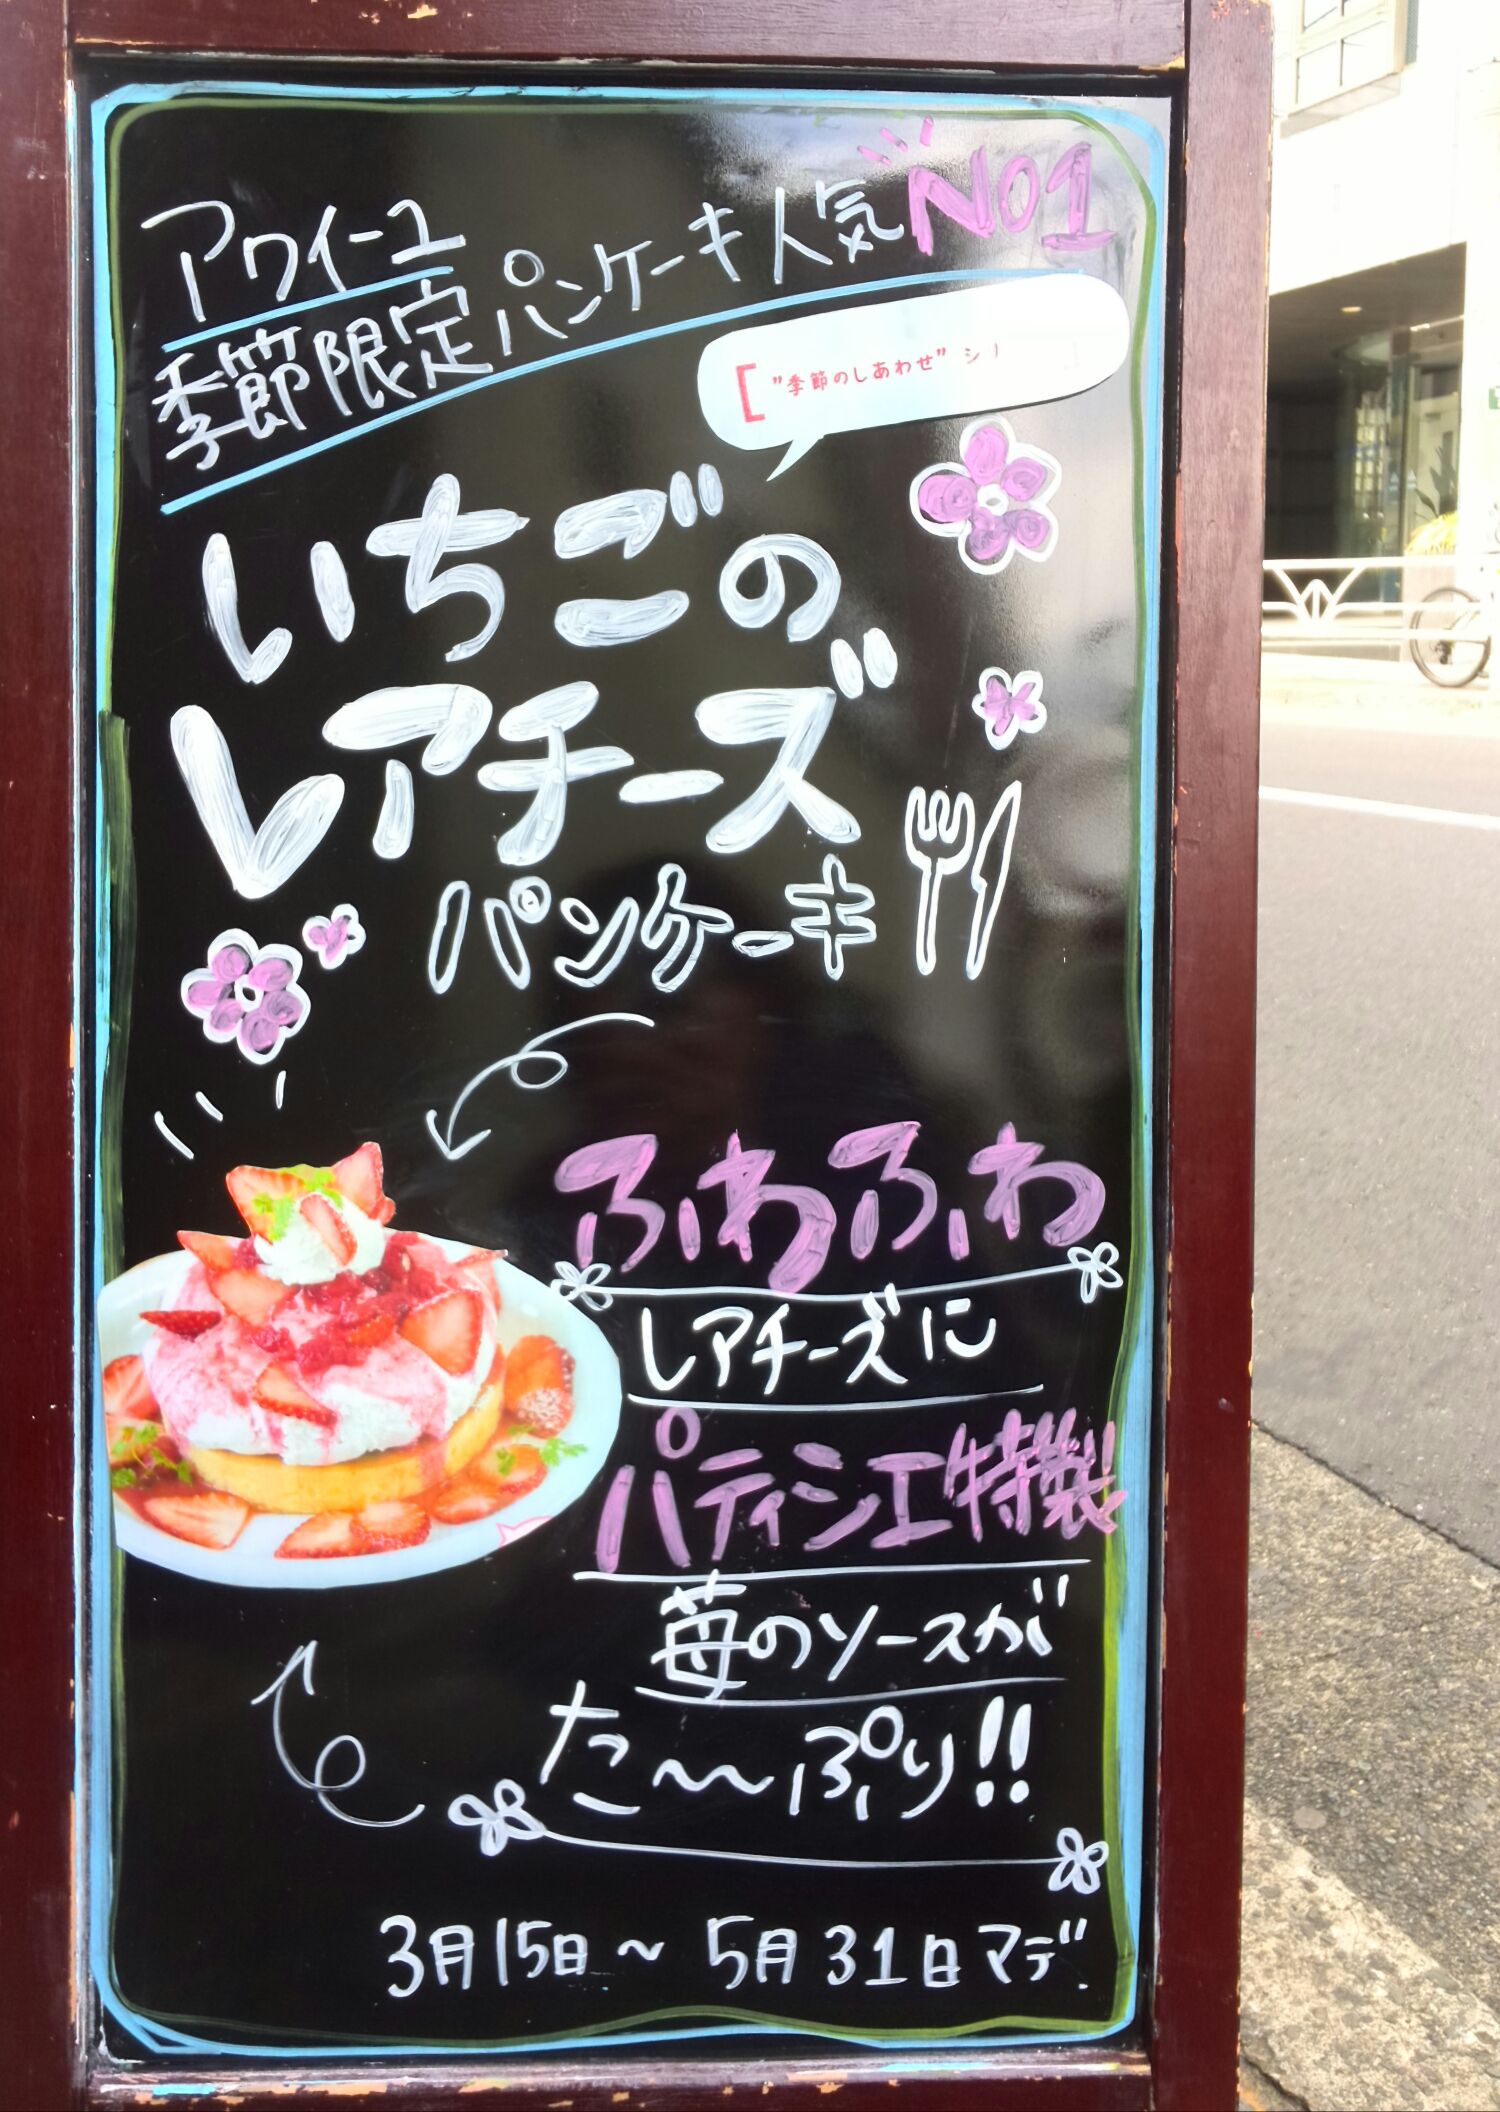 アワイーユ
季節限定パンケーキ人気No1
["季節のしあわせ" シリ
いちごの
レアチーズ
パンケーキ
ふわふわ
レアチーズに
パティシエ特製
苺のソースが
た〜ぷり!!
3月15日〜5月31日マデ.